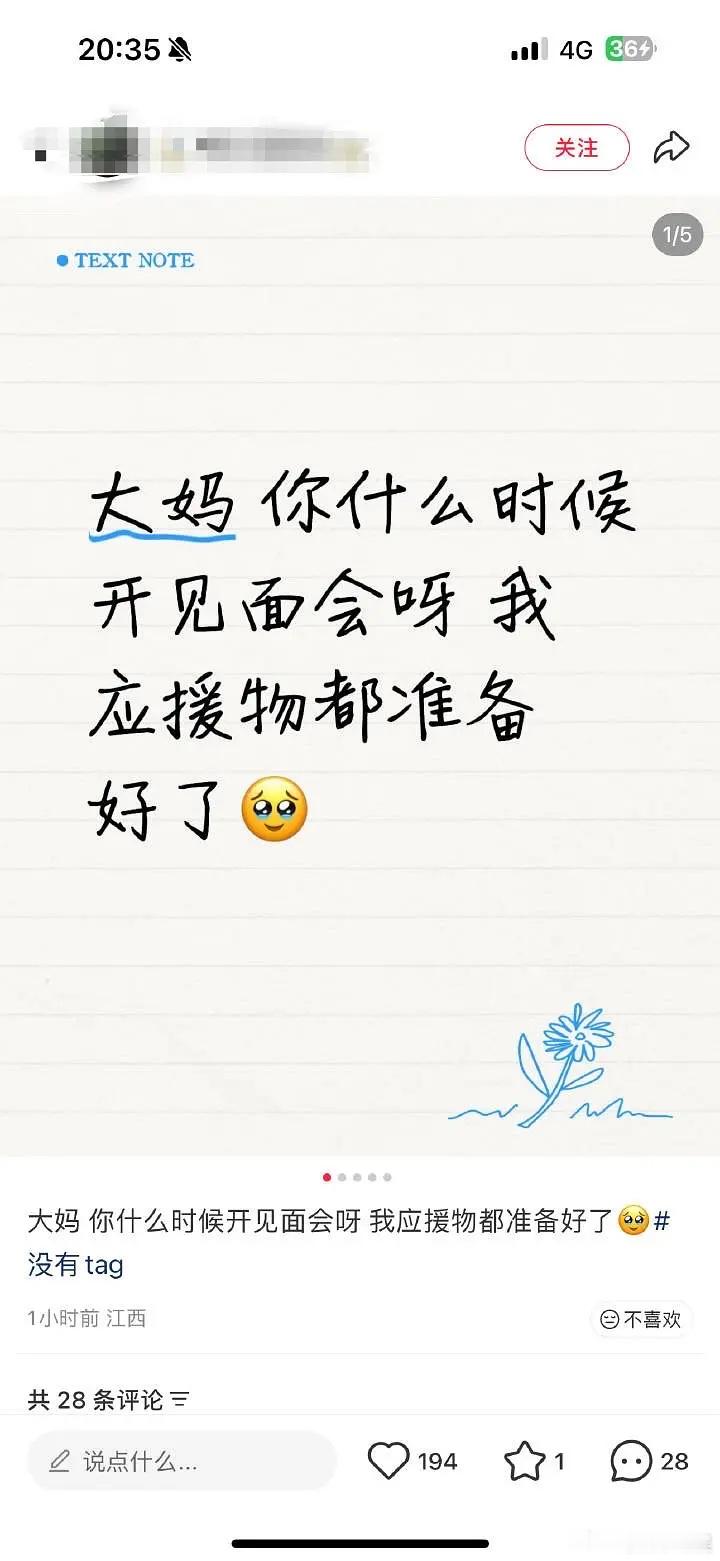 20:35 4G 36
关注
1/5
TEXT NOTE
大妈 你什么时候
开见面会呀 我
应援物都准备
好了🥹
大妈 你什么时候开见面会呀 我应援物都准备好了🥹#
没有tag
1小时前 江西 不喜欢
共 28 条评论
说点什么... 194 1 28